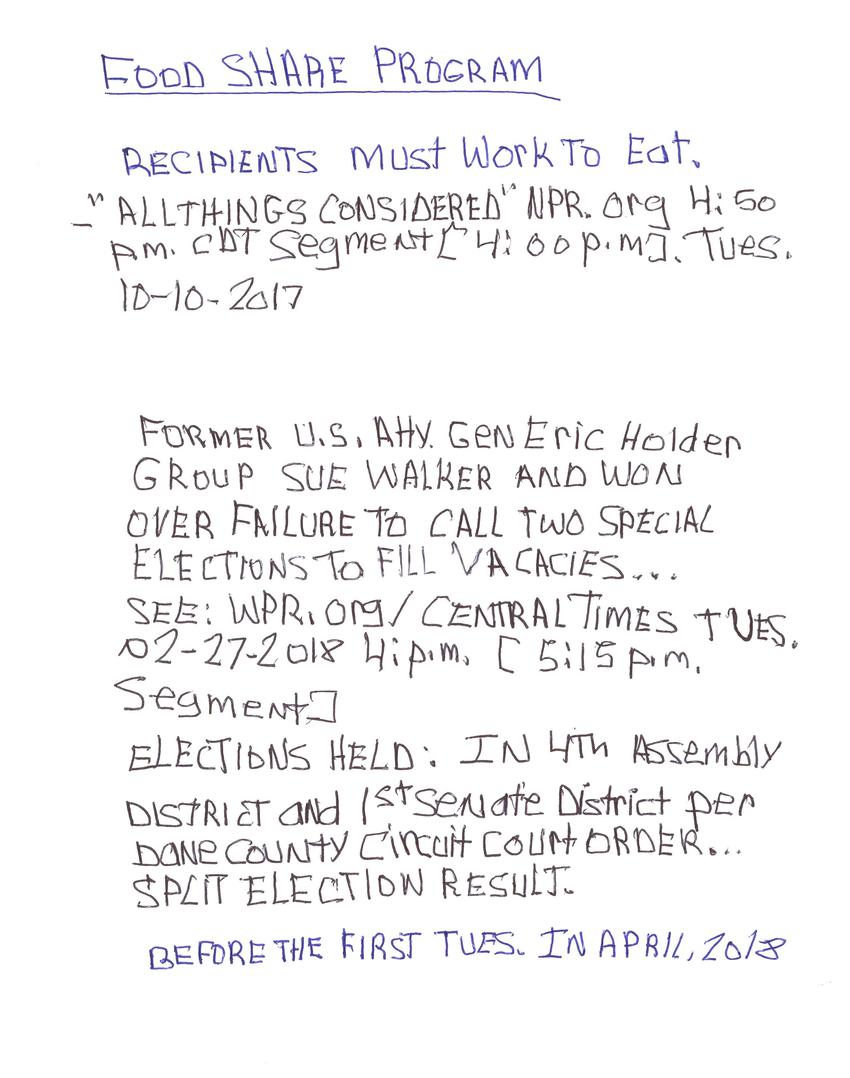 FOOD SHARE PROGRAM
RECIPIENTS MUST WORK TO EAT.
_" ALL THINGS CONSIDERED" NPR. Org 4:50
p.m. CDT Segment [ 4:00 p.m]. Tues.
10-10-2017
FORMER U.S. Atty. GEN Eric Holder
GROUP SUE WALKER AND WON
OVER FAILURE TO CALL TWO SPECIAL
ELECTIONS TO FILL VACACIES...
SEE: WPR.org/ CENTRAL TIMES TUES.
02-27-2018 4:p.m. [ 5:15 p.m.
Segment]
ELECTIONS HELD: IN 4Th Assembly
DISTRICT and 1st Senate District per
DANE COUNTY Circuit Court ORDER...
SPLIT ELECTION RESULT.
BEFORE THE FIRST TUES. IN APRIL, 2018